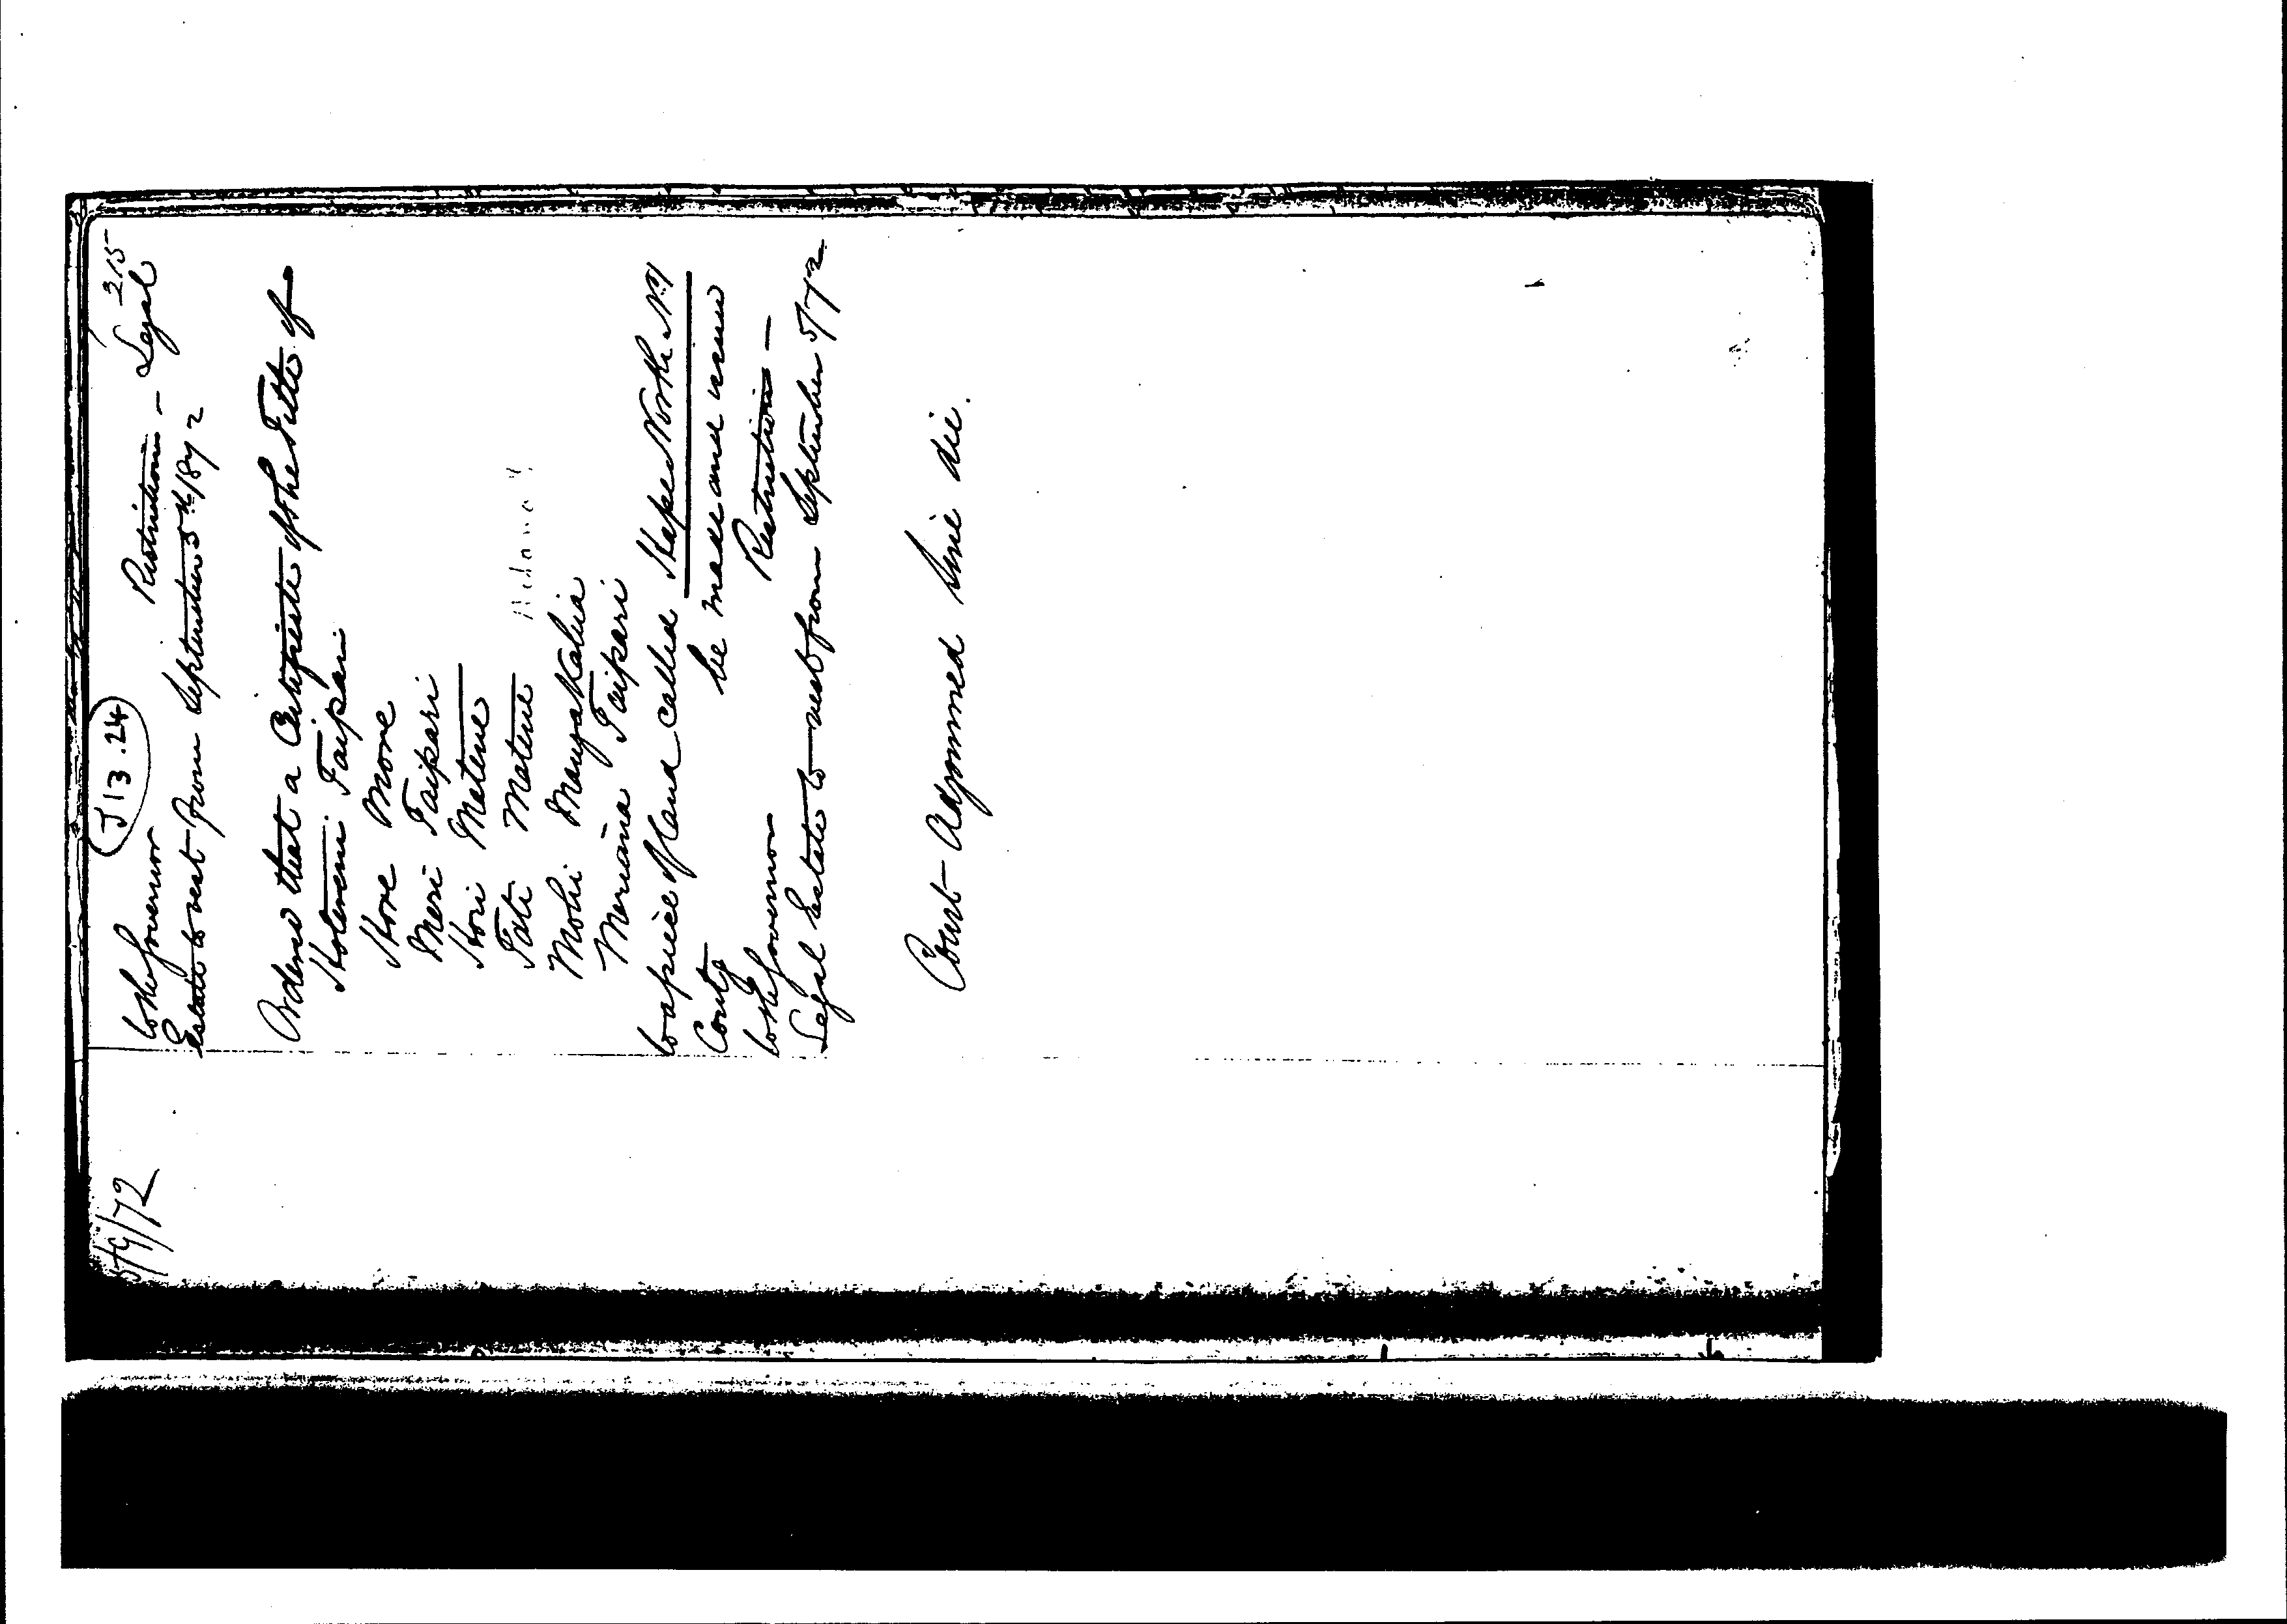 5/9/72
J 13.24
215
to the Governor Restrictions - Legal
Estate to vest from September 5th 1872
Ordered that a Certificate of the Title of
Hotereni Taipari
Hone Mone
Meri Taipari
Hori Matene
Tati Matene
Mohi Mangakahia
Meriana Taipari
to a piece of land called Hape North No 1
be made and issued
to the Governor Restrictions -
Legal Estate to vest from September 5/72
Court Adjourned Sine die.